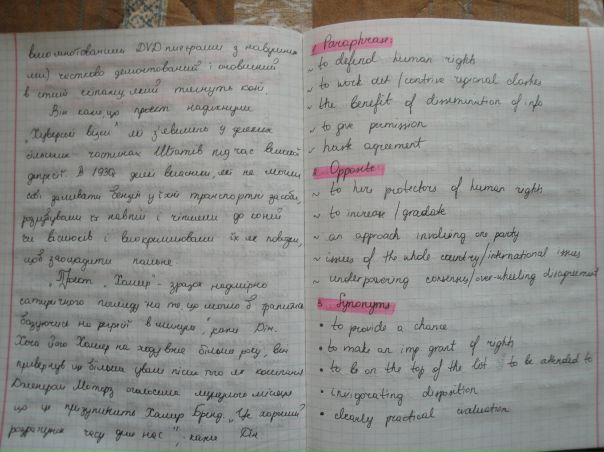 вмонтованими DVD програми з навушника
ми) частково демонтований і оновлений
в стилі екіпажу, який тягнуть коні.
Він каже, що проект надихнули
"Хуверові візки" які з'явились у деяких
більших частинах Штатів під час великої
депресії. В 1930х деякі власники, які не могли
собі дозволити бензин у їхні транспортні засоби,
розрубували їх навпіл і чіпляли до коней
чи віслюків і використовували їх як повозки,
щоб заощадити пальне.
"Проект Хамер - зразок надмірно
сатиричного погляду на те, що могло б трапитися
базуючись на регресії в минуле", каже Дін.
Хоча його Хамер на ходу вже більше року, він
привернув ще більше уваги після того як компанія
Дженерал Моторз оголосила минулого місяця
що це призупинить Хамер Бренд. "Це хороший
розрахунок часу для нас", каже Дін
1 Paraphrase
~ to defend human rights
~ to work out / contrive regional clashes
~ the benefit of dissemination of info
~ to give permission
~ hard agreement
2. Opposite
~ to hire protectors of human rights
~ to increase / graduate
~ an approach involving one party
~ issues of the whole country/international issues
~ underpowering consensus/over-wheeling disagreement
3. Synonyms
• to provide a chance
• to make an imp. grant of rights
• to be on the top of the list to be attended to
• invigorating disposition
• clearly practical evaluation